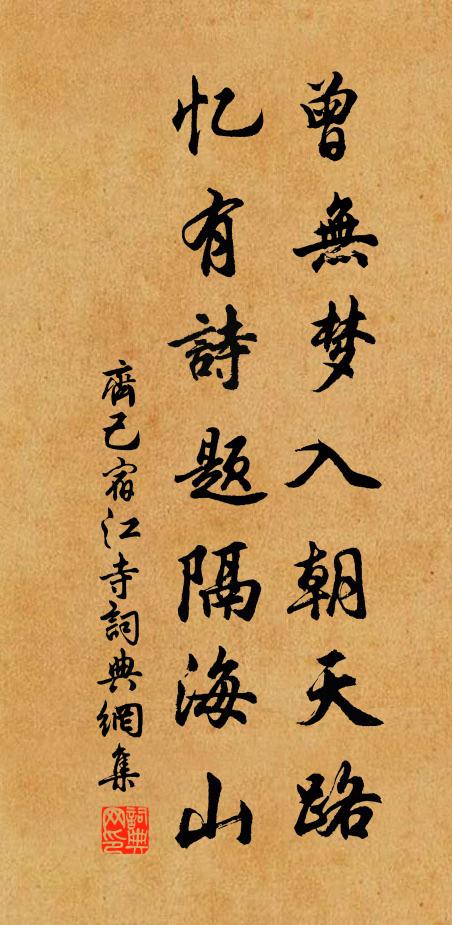 曾無梦入朝天路
忆有詩题隔海山
齊己宿江寺詞典網集
詞典网印